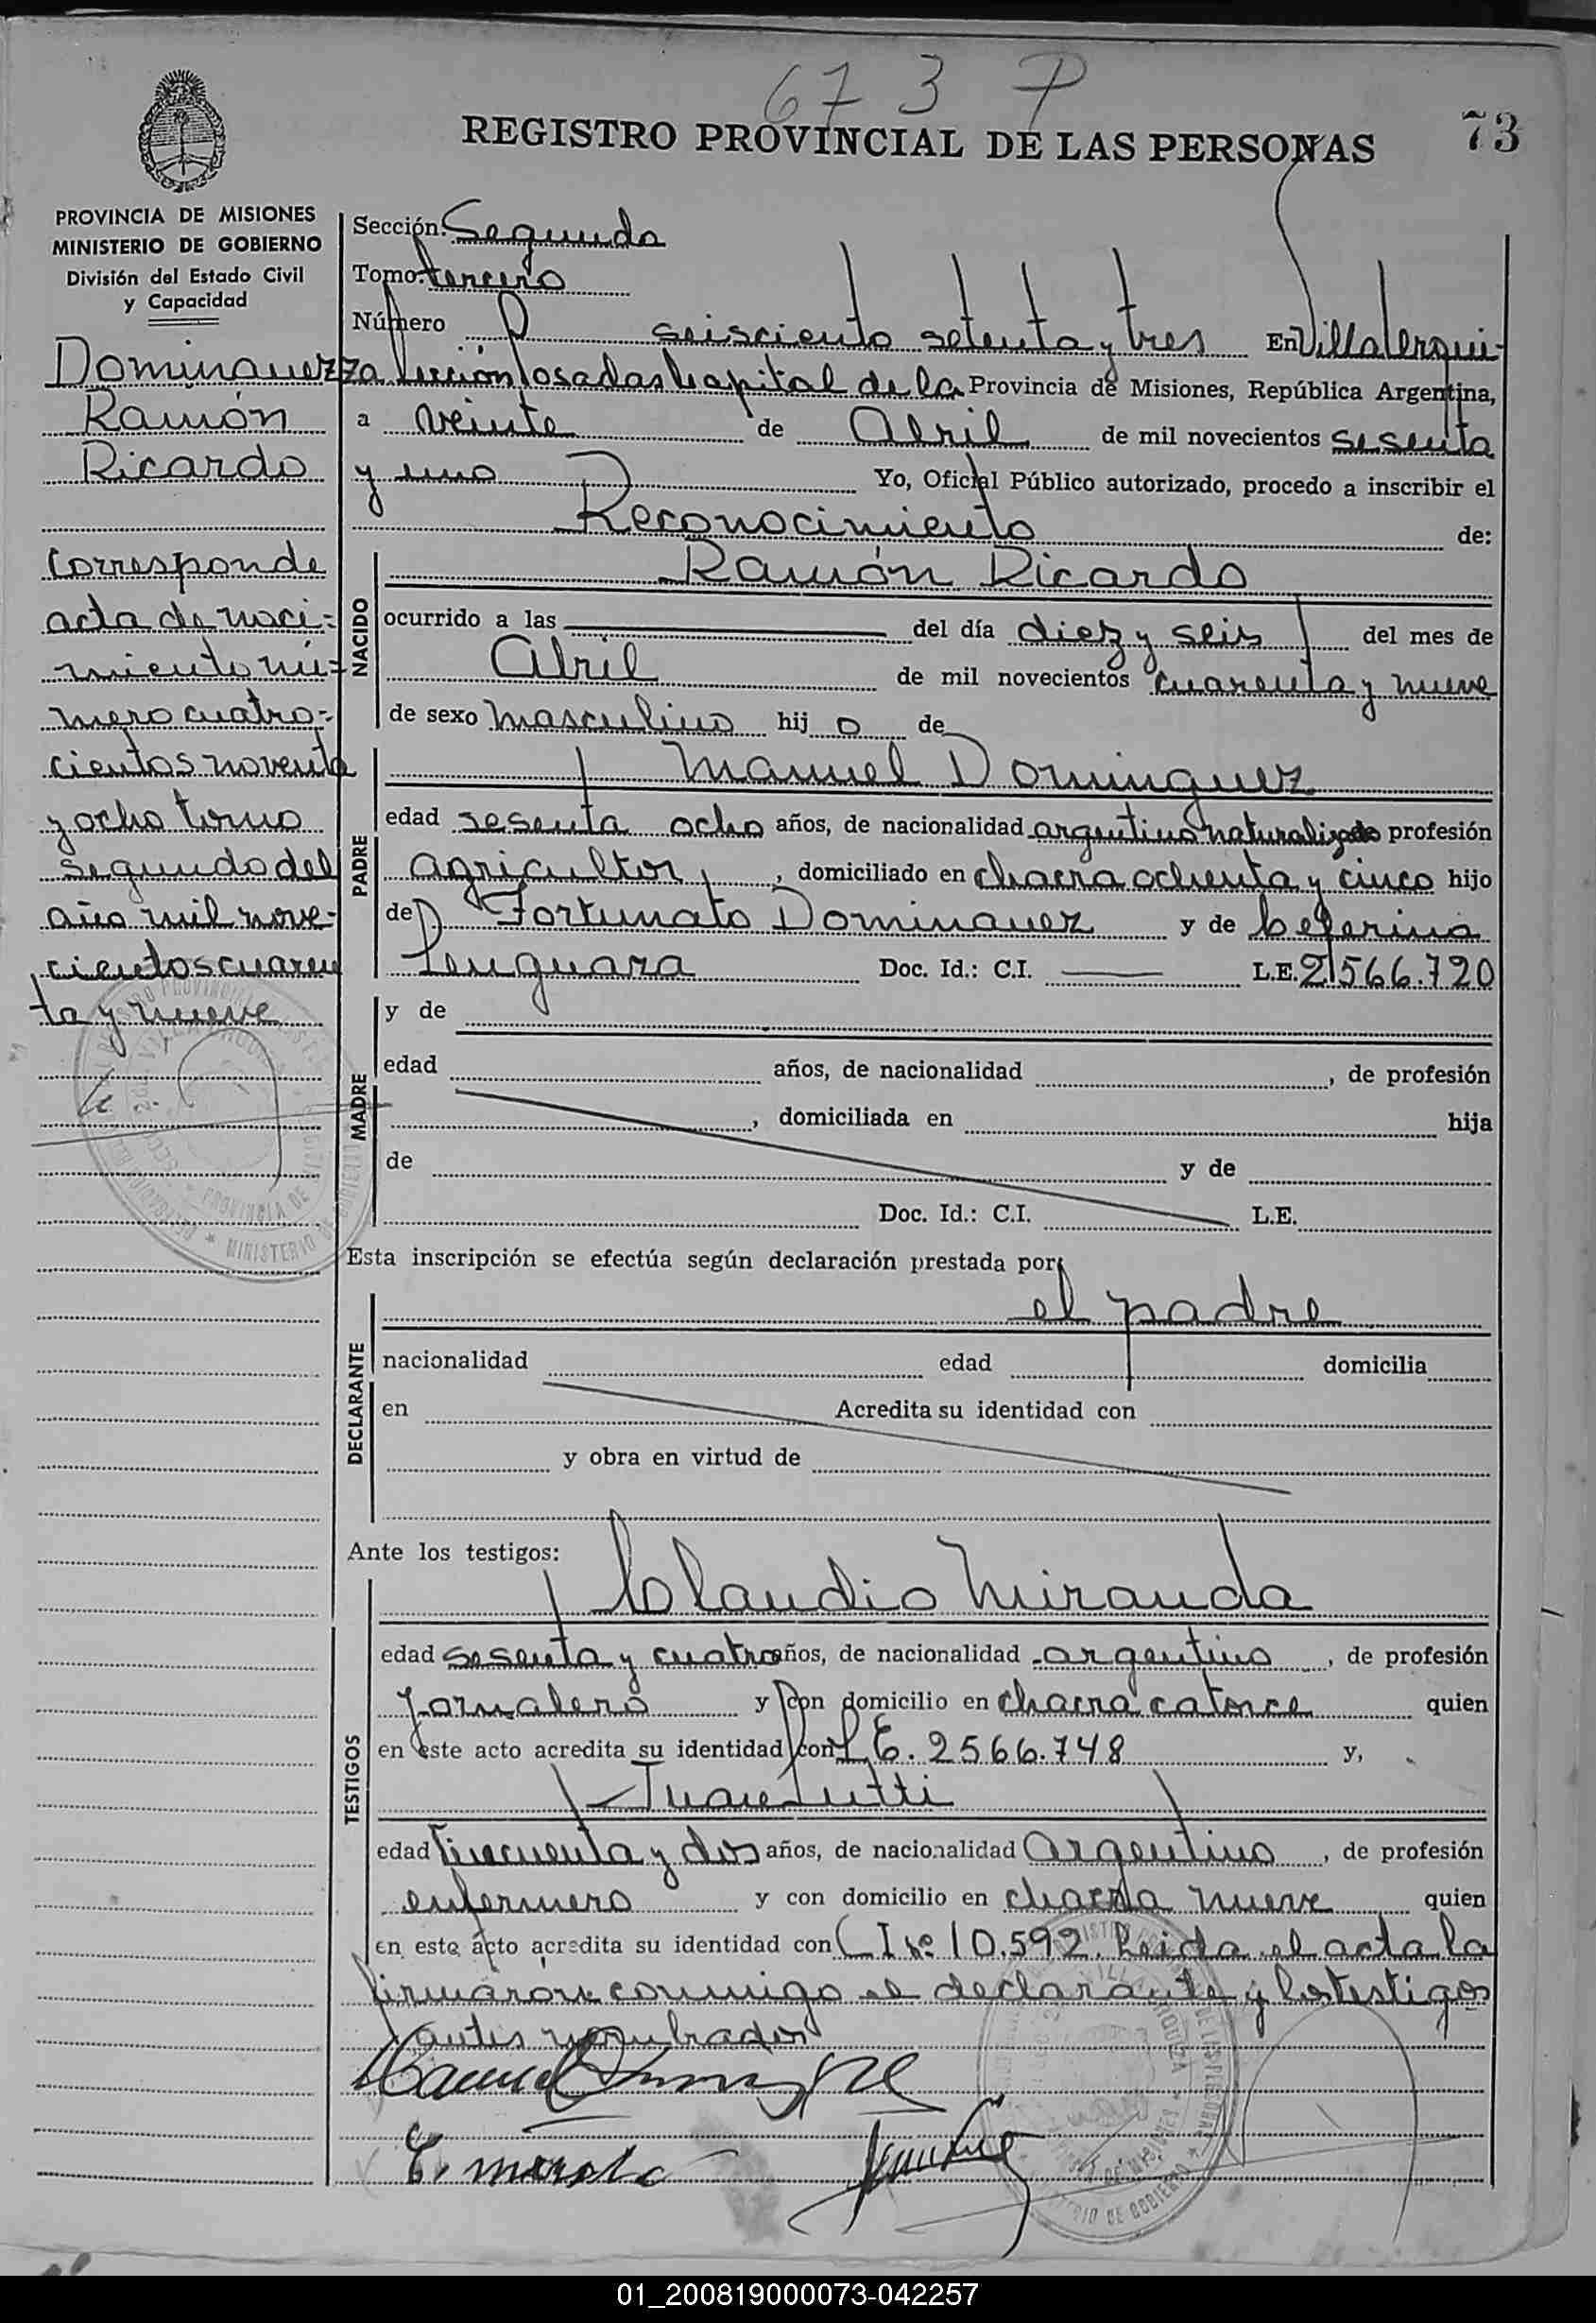 673 P
REGISTRO PROVINCIAL DE LAS PERSONAS
73
PROVINCIA DE MISIONES
MINISTERIO DE GOBIERNO
División del Estado Civil
y Capacidad
Dominguez
Ramón
Ricardo
Corresponde
acta de naci=
miento nú=
mero cuatro=
cientos noventa
y ocho tomo
segundo del
año mil nove=
cientos cuaren
ta y nueve
Sección: Segunda
Tomo: tercero
Número seisciento setenta y tres En Villa Urqui-
za Sección Posadas Capital de la Provincia de Misiones, República Argentina,
a veinte de Abril de mil novecientos sesenta
y uno Yo, Oficial Público autorizado, procedo a inscribir el
Reconocimiento de:
NACIDO
Ramón Ricardo
ocurrido a las del día diez y seis del mes de
Abril de mil novecientos cuarenta y nueve
de sexo masculino hijo de
PADRE
Manuel Dominguez
edad sesenta ocho años, de nacionalidad argentino naturalizado profesión
agricultor, domiciliado en chacra ochenta y cinco hijo
de Fortunato Dominguez y de Ceferina
Lenguara Doc. Id.: C.I. L.E. 2566.720
MADRE
y de
edad años, de nacionalidad , de profesión
, domiciliada en hija
de y de
Doc. Id.: C.I. L.E.
Esta inscripción se efectúa según declaración prestada por:
DECLARANTE
el padre
nacionalidad edad domicilia
en Acredita su identidad con
y obra en virtud de
Ante los testigos:
TESTIGOS
Claudio Miranda
edad sesenta y cuatro años, de nacionalidad argentino, de profesión
Jornalero y con domicilio en chacra catorce quien
en este acto acredita su identidad con L E. 2566.748 y,
Juan Lutti
edad Cincuenta y dos años, de nacionalidad Argentino, de profesión
enfermero y con domicilio en chacra nueve quien
en este acto acredita su identidad con C I Nº 10.592. Leida el acta la
firmaron conmigo el declarante y los testigos
antes nombrados
01_200819000073-042257